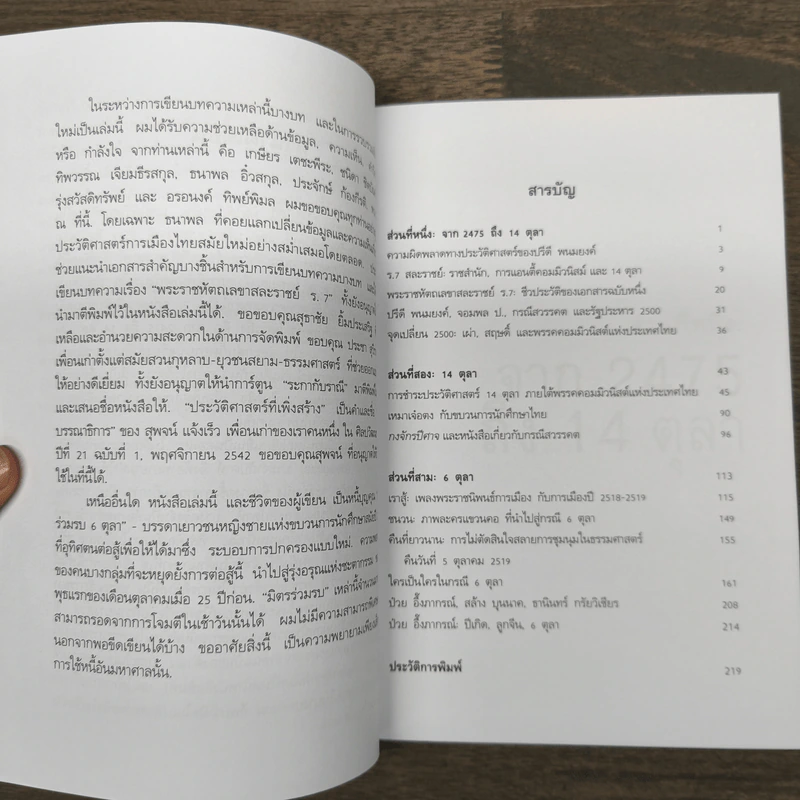 ในระหว่างการเขียนบทความเหล่านี้บางบท และในการรวบรวม
ใหม่เป็นเล่มนี้ ผมได้รับความช่วยเหลือด้านข้อมูล, ความเห็น,
หรือ กำลังใจ จากท่านเหล่านี้ คือ เกษียร เตชะพีระ, ชนิดา
ทิพวรรณ เจียมธีรสกุล, ธนาพล อิ๋วสกุล, ประจักษ์ ก้องกีรติ,
รุ่งสวัสดิทรัพย์ และ อรอนงค์ ทิพย์พิมล ผมขอขอบคุณทุกท่าน
ณ ที่นี้. โดยเฉพาะ ธนาพล ที่คอยแลกเปลี่ยนข้อมูลและความเห็น
ประวัติศาสตร์การเมืองไทยสมัยใหม่อย่างสม่ำเสมอโดยตลอด,
ช่วยแนะนำเอกสารสำคัญบางชิ้นสำหรับการเขียนบทความบางบท และ
เขียนบทความเรื่อง "พระราชหัตถเลขาสละราชย์ ร.7" ทั้งยังอนุญาต
นำมาตีพิมพ์ไว้ในหนังสือเล่มนี้ได้. ขอขอบคุณสุธาชัย ยิ้มประเสริฐ
เหลือและอำนวยความสะดวกในด้านการจัดพิมพ์ ขอบคุณ ประชา
เพื่อนเก่าตั้งแต่สมัยสวนกุหลาบ-ยุวชนสยาม-ธรรมศาสตร์ ที่ช่วยออก
ให้อย่างดีเยี่ยม ทั้งยังอนุญาตให้นำการ์ตูน "ระกากับราณี"
และเสนอชื่อหนังสือให้. "ประวัติศาสตร์ที่เพิ่งสร้าง" เป็นคำและชื่อ
บรรณาธิการ" ของ สุพจน์ แจ้งเร็ว เพื่อนเก่าของเราคนหนึ่ง ใน
ปีที่ 21 ฉบับที่ 1, พฤศจิกายน 2542 ขอขอบคุณสุพจน์ ที่อนุญาต
ใช้ในที่นี้ได้.
เหนืออื่นใด หนังสือเล่มนี้ และชีวิตของผู้เขียน เป็นหนี้บุญคุณ
ร่วมรบ 6 ตุลา" - บรรดาเยาวชนหญิงชายแห่งขบวนการนักศึกษา
ที่อุทิศตนต่อสู้เพื่อให้ได้มาซึ่ง ระบอบการปกครองแบบใหม่.
ของคนบางกลุ่มที่จะหยุดยั้งการต่อสู้นี้ นำไปสู่รุ่งอรุณแห่งชะตากรรม
พุธแรกของเดือนตุลาคมเมื่อ 25 ปีก่อน. "มิตรร่วมรบ" เหล่านี้จำนวน
สามารถรอดจากการโจมตีในเช้าวันนั้นได้ ผมไม่มีความสามารถ
นอกจากพอขีดเขียนได้บ้าง ขออาศัยสิ่งนี้ เป็นความพยายามเพียง
การใช้หนี้อันมหาศาลนั้น.
สารบัญ
ส่วนที่หนึ่ง: จาก 2475 ถึง 14 ตุลา 1
ความผิดพลาดทางประวัติศาสตร์ของปรีดี พนมยงค์ 3
ร.7 สละราชย์: ราชสำนัก, การแอนตี้คอมมิวนิสม์ และ 14 ตุลา 9
พระราชหัตถเลขาสละราชย์ ร.7: ชีวประวัติของเอกสารฉบับหนึ่ง 20
ปรีดี พนมยงค์, จอมพล ป., กรณีสวรรคต และรัฐประหาร 2500 31
จุดเปลี่ยน 2500: เผ่า, สฤษดิ์ และพรรคคอมมิวนิสต์แห่งประเทศไทย 36
ส่วนที่สอง: 14 ตุลา 43
การชำระประวัติศาสตร์ 14 ตุลา ภายใต้พรรคคอมมิวนิสต์แห่งประเทศไทย 45
เหมาเจ๋อตง กับขบวนการนักศึกษาไทย 90
กงจักรปีศาจ และหนังสือเกี่ยวกับกรณีสวรรคต 96
ส่วนที่สาม: 6 ตุลา 113
เราสู้: เพลงพระราชนิพนธ์การเมือง กับการเมืองปี 2518-2519 115
ชนวน: ภาพละครแขวนคอ ที่นำไปสู่กรณี 6 ตุลา 149
คืนที่ยาวนาน: การไม่ตัดสินใจสลายการชุมนุมในธรรมศาสตร์ 155
คืนวันที่ 5 ตุลาคม 2519
ใครเป็นใครในกรณี 6 ตุลา 161
ป๋วย อึ๊งภากรณ์, สล้าง บุนนาค, ธานินทร์ กรัยวิเชียร 208
ป๋วย อึ๊งภากรณ์: ปีเกิด, ลูกจีน, 6 ตุลา 214
ประวัติการพิมพ์ 219